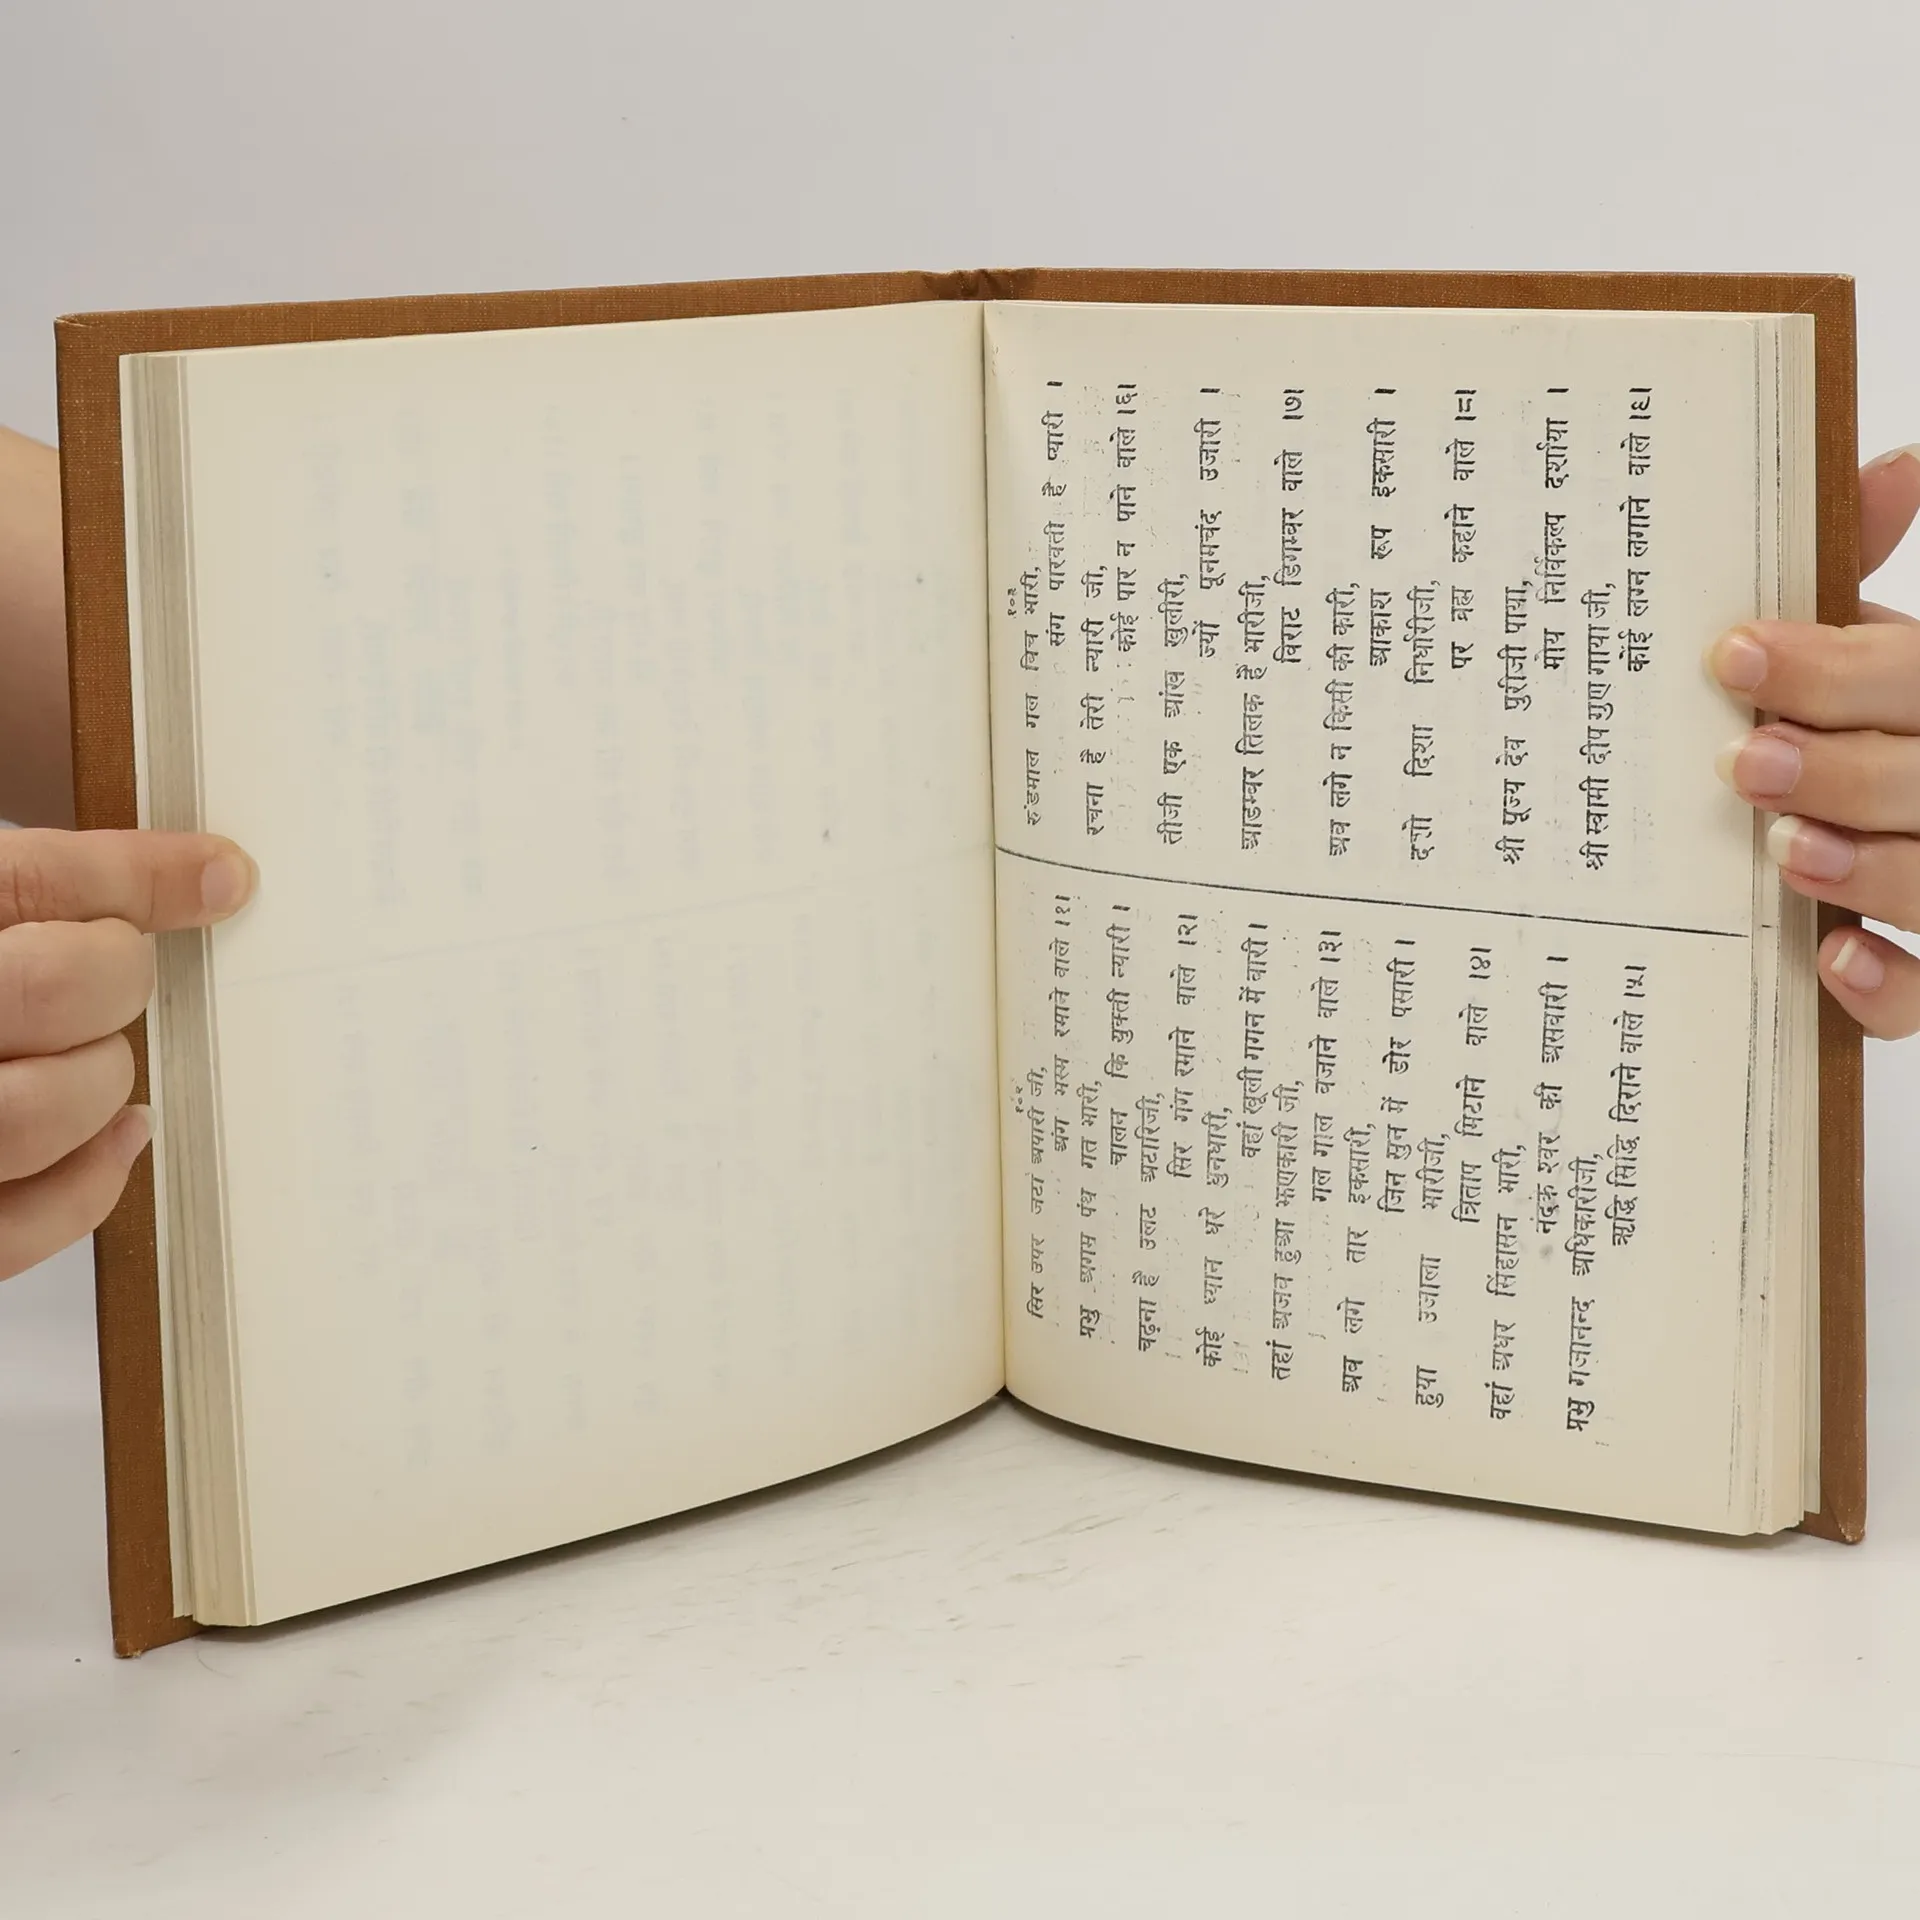 १०२
सिर उपर जटां अपारी जी,
अंग भस्म रमाने वाले ।१।
प्रभु अगम पंथ गत भारी,
चालन कि युक्ती न्यारी ।
चढ़ना है उलट अटारीजी,
सिर गंग रमाने वाले ।२।
कोई ध्यान धरे बुनधारी,
वहां खुली गगन में बारी ।
तहां अजब हुआ भणकारी जी,
गल गाल बजाने वाले ।३।
अब लगे तार इकसारी,
जिन सुन में डोर पसारी ।
हुया उजाला भारीजी,
त्रिताप मिटाने वाले ।४।
वहां अधर सिंहासन भारी,
नंदके श्वर की असवारी ।
प्रभु गजानन्द अधिकारीजी,
ऋद्धि सिद्धि दिराने वाले ।५।
१०३
रुंडमाल गल विच भारी,
संग पारवती है प्यारी ।
रचना है तेरी न्यारी जी,
कोई पार न पाने वाले ।६।
तीजी एक आंख खुलारी,
ज्यों पूनमचंद उजारी ।
आडम्बर तिलक है भारीजी,
विराट डिगम्बर वाले ।७।
अब लगे न किसी की कारी,
आकाश रूप इकसारी ।
दूजो दिश्या निधारीजी,
पर ब्रह्म कहाने वाले ।८।
श्री पूज्य देव पुरीजी पाया,
मोय निर्विकल्प दर्शाया ।
श्री स्वामी दीप गुण गाया जी,
कोई लगन लगाने वाले ।९।